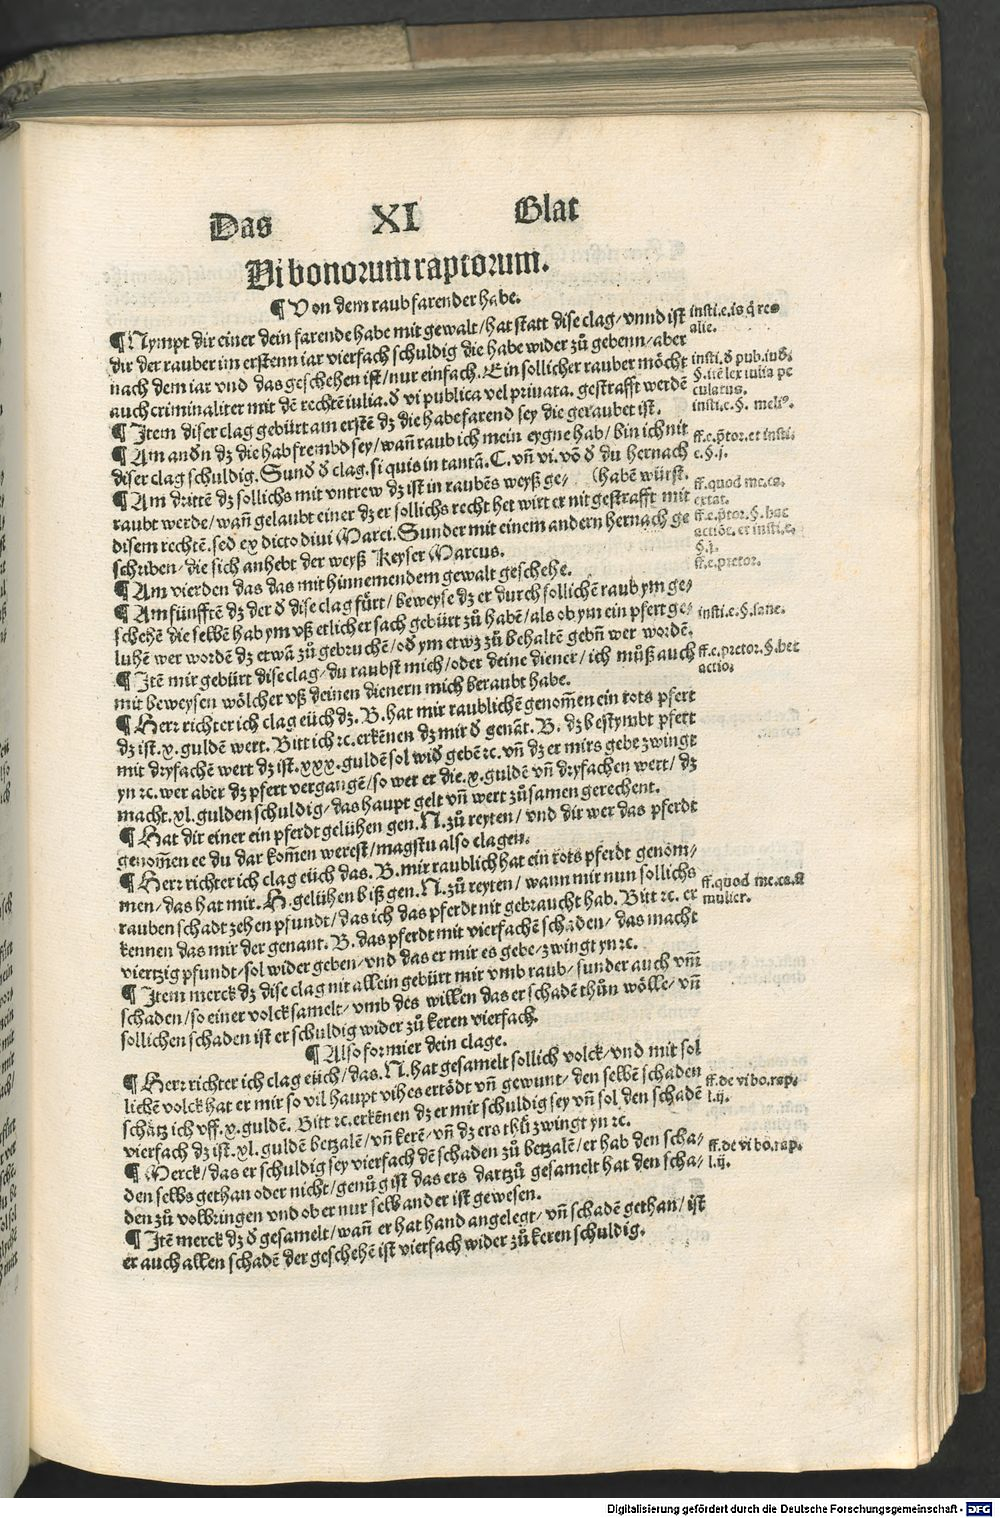 Das XI Blat
Vi bonorum raptorum.
¶ Von dem raub farender habe.
¶ Nympt dir einer dein farende habe mit gewalt/ hat statt dise clag/ vnnd ist
dir der rauber im erstenn iar vierfach schuldig die habe wider zů gebenn/ aber
nach dem iar vnd das geschehen ist/ nur einfach. Ein sollicher rauber möcht
auch criminaliter mit dē rechtē iulia. ð vi publica vel priuata. gestrafft werdē
¶ Item diser clag gebürt am erstē dz die habe farend sey die geraubet ist.
¶ Am andn dz die hab frembd sey/ wañ raub ich mein eygne hab/ bin ich nit
diser clag schuldig. Sund ð clag. si quis in tantā. C. vñ vi. vō ð du hernach
(habē würst.
¶ Am drittē dz sollichs mit vntrew dz ist in raubēs weyß ge-
raubt werde/ wañ gelaubt einer dz er sollichs recht het wirt er nit gestrafft mit
disem rechtē. sed ex dicto diui Marci. Sunder mit einem andern hernach ge
schriben/ die sich anhebt der weyß Keyser Marcus.
¶ Am vierden das das mit hinnemendem gewalt geschehe.
¶ Am fünfftē dz der ð dise clag fürt/ beweyse dz er durch sollichē raub ym ge-
schehē die selbē hab ym vß etlicher sach gebürt zů habē/ als ob ym ein pfert ge-
luhē wer wordē dz etwā zů gebruchē/ od ym etwz zů behaltē gebñ wer wordē.
¶ Itē mir gebürt dise clag/ du raubst mich/ oder deine diener/ ich můß auch
mit beweysen wölcher vß deinen dienern mich beraubt habe.
¶ Herr richter ich clag eüch dz. B. hat mir raublichē genom̄en ein rots pfert
dz ist. x. guldē wert. Bitt ich ꝛc. erkēnen dz mir ð genāt. B. dz bestymbt pfert
mit dryfachē wert dz ist. xxx. guldē sol wid gebē ꝛc. vñ dz er mirs gebe zwingt
yn ꝛc. wer aber dz pfert vergangē/ so wer er die. x. guldē vñ dryfachen wert/ dz
macht. xl. gulden schuldig/ das haupt gelt vñ wert zůsamen gerechent.
¶ Hat dir einer ein pferdt gelühen gen. N. zů reyten/ vnd dir wer das pferdt
genom̄en ee du dar kom̄en werest/ magstu also clagen.
¶ Herr richter ich clag eüch das. B. mir raublich hat ein rots pferdt genom-
men/ das hat mir. H. gelühen biß gen. N. zů reyten/ wann mir nun sollichs
rauben schadt zehen pfundt/ das ich das pferdt nit gebraucht hab. Bitt ꝛc. er
kennen das mir der genant. B. das pferdt mit vierfachē schäden/ das macht
viertzig pfundt/ sol wider geben/ vnd das er mir es gebe/ zwingt yn ꝛc.
¶ Item merck dz dise clag nit allein gebürt mir vmb raub/ sunder auch vm̄
schaden/ so einer volck samelt/ vmb des willen das er schadē thün wölle/ vñ
sollichen schaden ist er schuldig wider zů keren vierfach.
¶ Also formier dein clage.
¶ Herr richter ich clag eüch/ das. N. hat gesamelt sollich volck/ vnd mit sol
lichē volck hat er mir so vil haupt vihes ertödt vñ gewunt/ den selbē schaden
schätz ich vff. x. guldē. Bitt ꝛc. erkēnen dz er mir schuldig sey vñ sol den schadē
vierfach dz ist. xl. guldē betzalē/ vñ kerē/ vñ dz ers thů zwingt yn ꝛc.
¶ Merck/ das er schuldig sey vierfach dē schaden zů betzalē/ er hab den scha-
den selbs gethan oder nicht/ genůg ist das ers dartzů gesamelt hat den scha-
den zů volbringen vnd ob er nur selb ander ist gewesen.
¶ Itē merck dz ð gesamelt/ wañ er hat hand angelegt/ vñ schadē gethan/ ist
er auch allen schadē der geschehē ist vierfach wider zů keren schuldig.
insti. e. is q̄ res
alie.
insti. ð pub. iud.
§. itē lex iulia pe
culatus.
insti. e. §. meliꝰ.
ff. e. p̄tor. et insti.
e. §. j.
ff. quod me. ca.
extat.
ff. e. p̄tor. §. hac
actiōe. et insti. e.
§. j.
ff. e. pretor.
insti. e. §. sane.
ff. e. pretor. §. hec
actio.
ff. quod me. ca. ł
mulier.
ff. de vi bo. rap.
l. ij.
ff. de vi bo. rap.
l. ij.
Digitalisierung gefördert durch die Deutsche Forschungsgemeinschaft - DFG